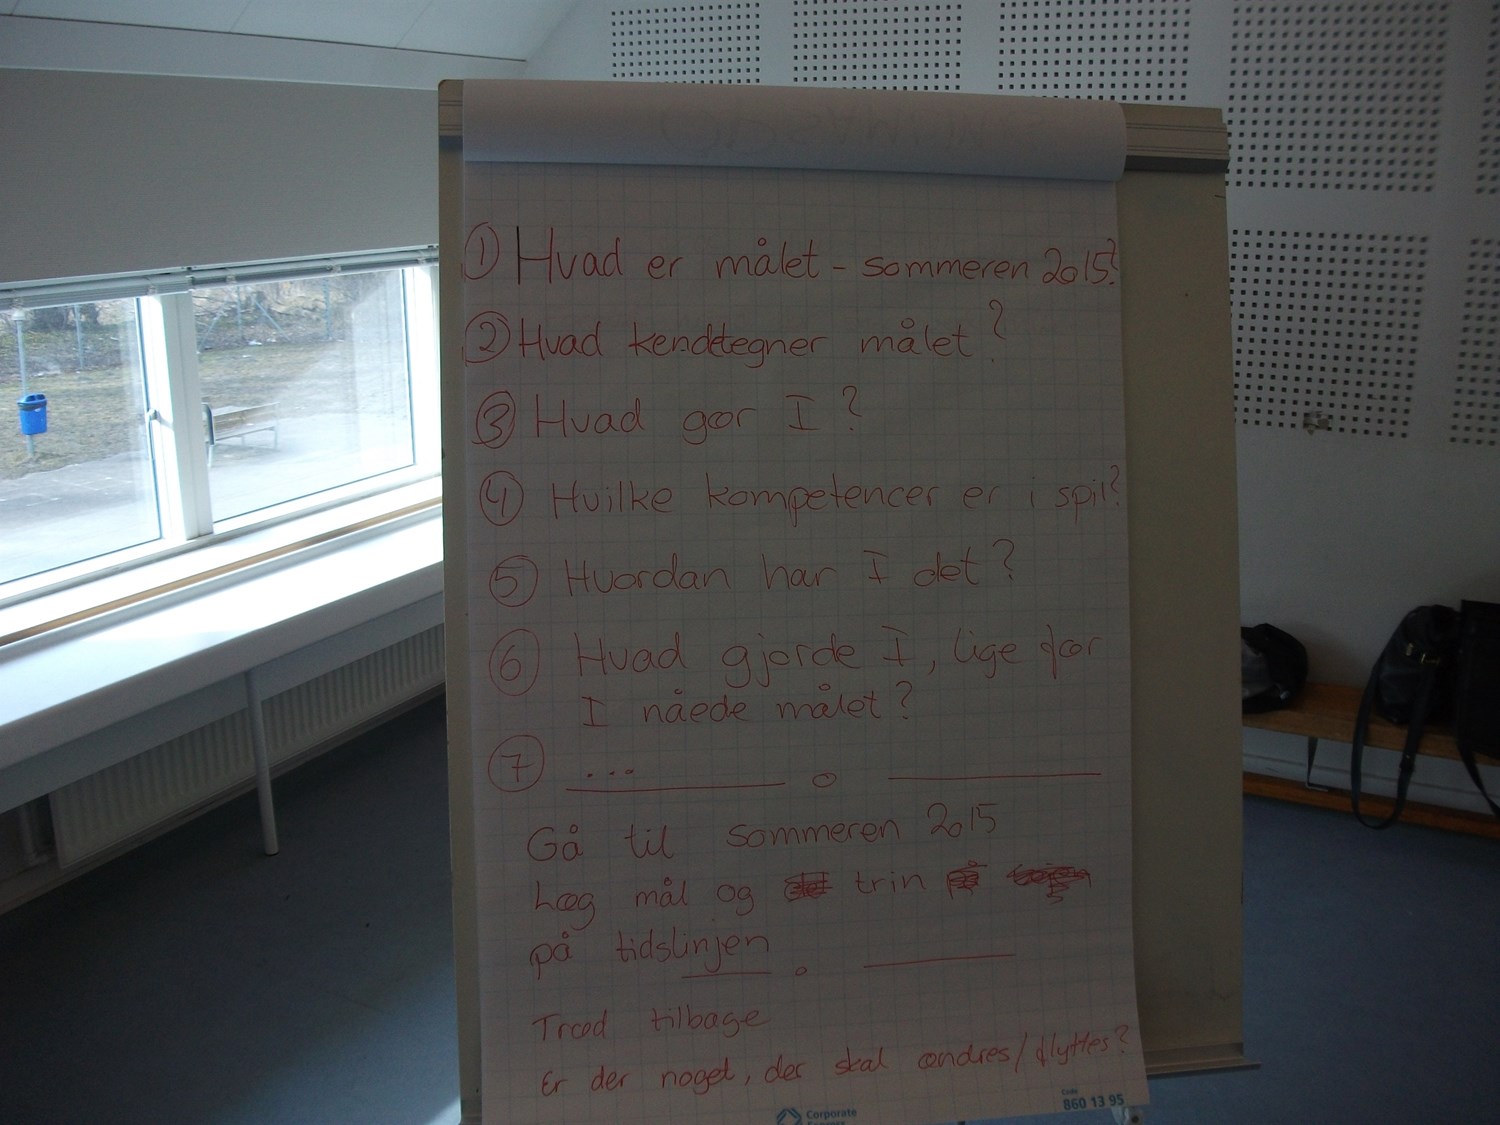 ① Hvad er målet - sommeren 2015?
② Hvad kendetegner målet?
③ Hvad gør I?
④ Hvilke kompetencer er i spil?
⑤ Hvordan har I det?
⑥ Hvad gjorde I, lige før
I nåede målet?
⑦ ...
Gå til sommeren 2015
Læg mål og trin
på tidslinjen
Træd tilbage
Er der noget, der skal ændres/flyttes?
Code
860 13 95
Corporate
Express